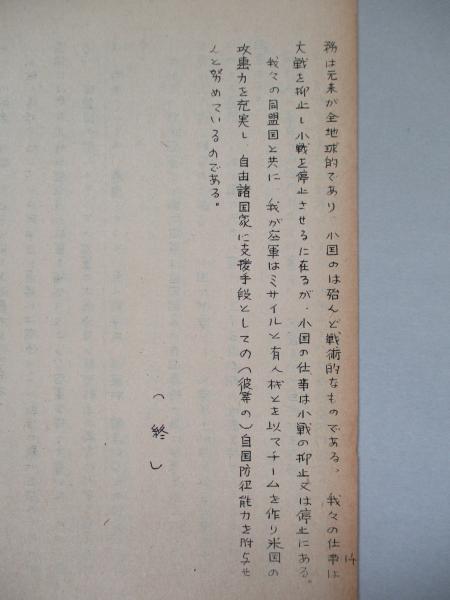 務は元来が全地球的であり、小国のは殆んど戦術的なものである。我々の仕事は
大戦を抑止し小戦を停止させるに在るが、小国の仕事は小戦の抑止又は停止にある。
我々の同盟国と共に、我が空軍はミサイルと有人機とを以てチームを作り米国の
攻撃力を充実し、自由諸国家に支援手段としての（彼等の）自国防衛能力を附与せ
んと努めているのである。
（終）
14